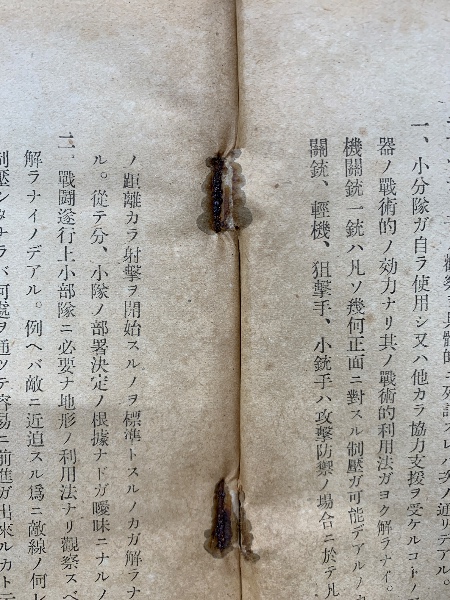 ㇾバ次ノ通リデアル。
一、小分隊ガ自ラ使用シ又ハ他カラ協力支援ヲ受ケルコトノ
器ノ戰術的ノ効力ナリ其ノ戰術的利用法ガヨク解ラナイ。
機關銃一銃ハ凡ソ幾何正面ニ對スル制壓ガ可能デアルノカ
關銃、輕機、狙擊手、小銃手ハ攻擊防禦ノ場合ニ於テ凡
ノ距離カラ射擊ヲ開始スルノヲ標準トスルノカガ解ラナ
ル。從テ分、小隊ノ部署決定ノ根據ナドガ曖昧ニナルノ
二、戰鬪遂行上小部隊ニ必要ナ地形ノ利用法ナリ觀察スベ
解ラナイノデアル。例ヘバ敵ニ近迫スル爲ニ敵線ノ何レ
ナラバ何處ヲ通ツテ容易ニ前進ガ出來ルカト